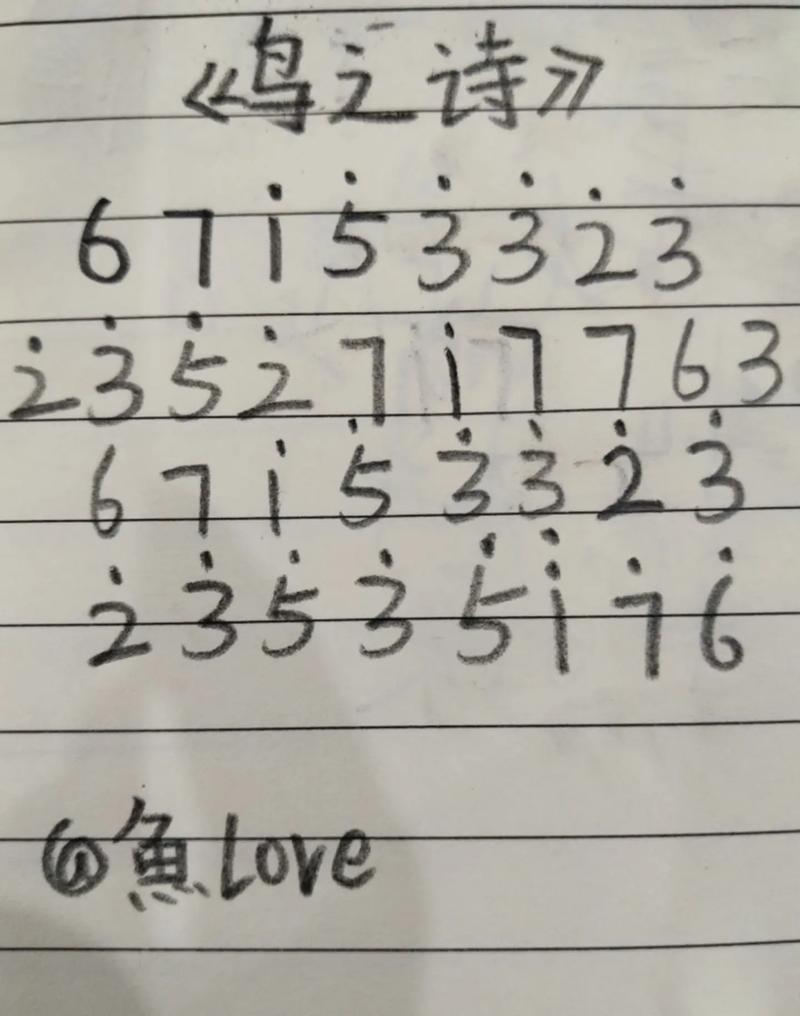 《鸟之诗》
6 7 1̇ 5̇ 3̇ 3̇ 2̇ 3̇
2̇ 3̇ 5̇ 2̇ 7 1̇ 7 7 6 3
6 7 1̇ 5̇ 3̇ 3̇ 2̇ 3̇
2̇ 3̇ 5̇ 3̇ 5̇ 1̈ 7̇ 6̇
@魚Love